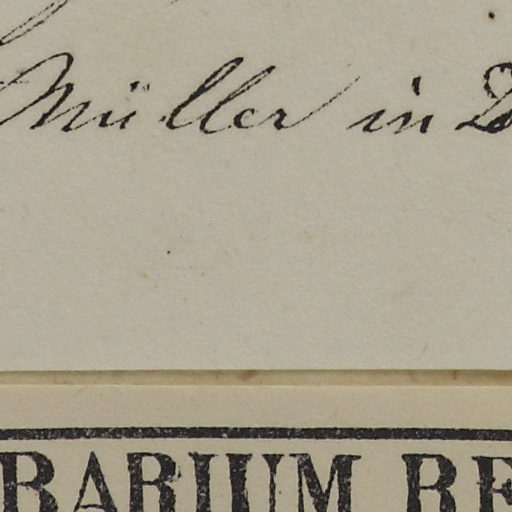 Müller in D
BARIUM BE